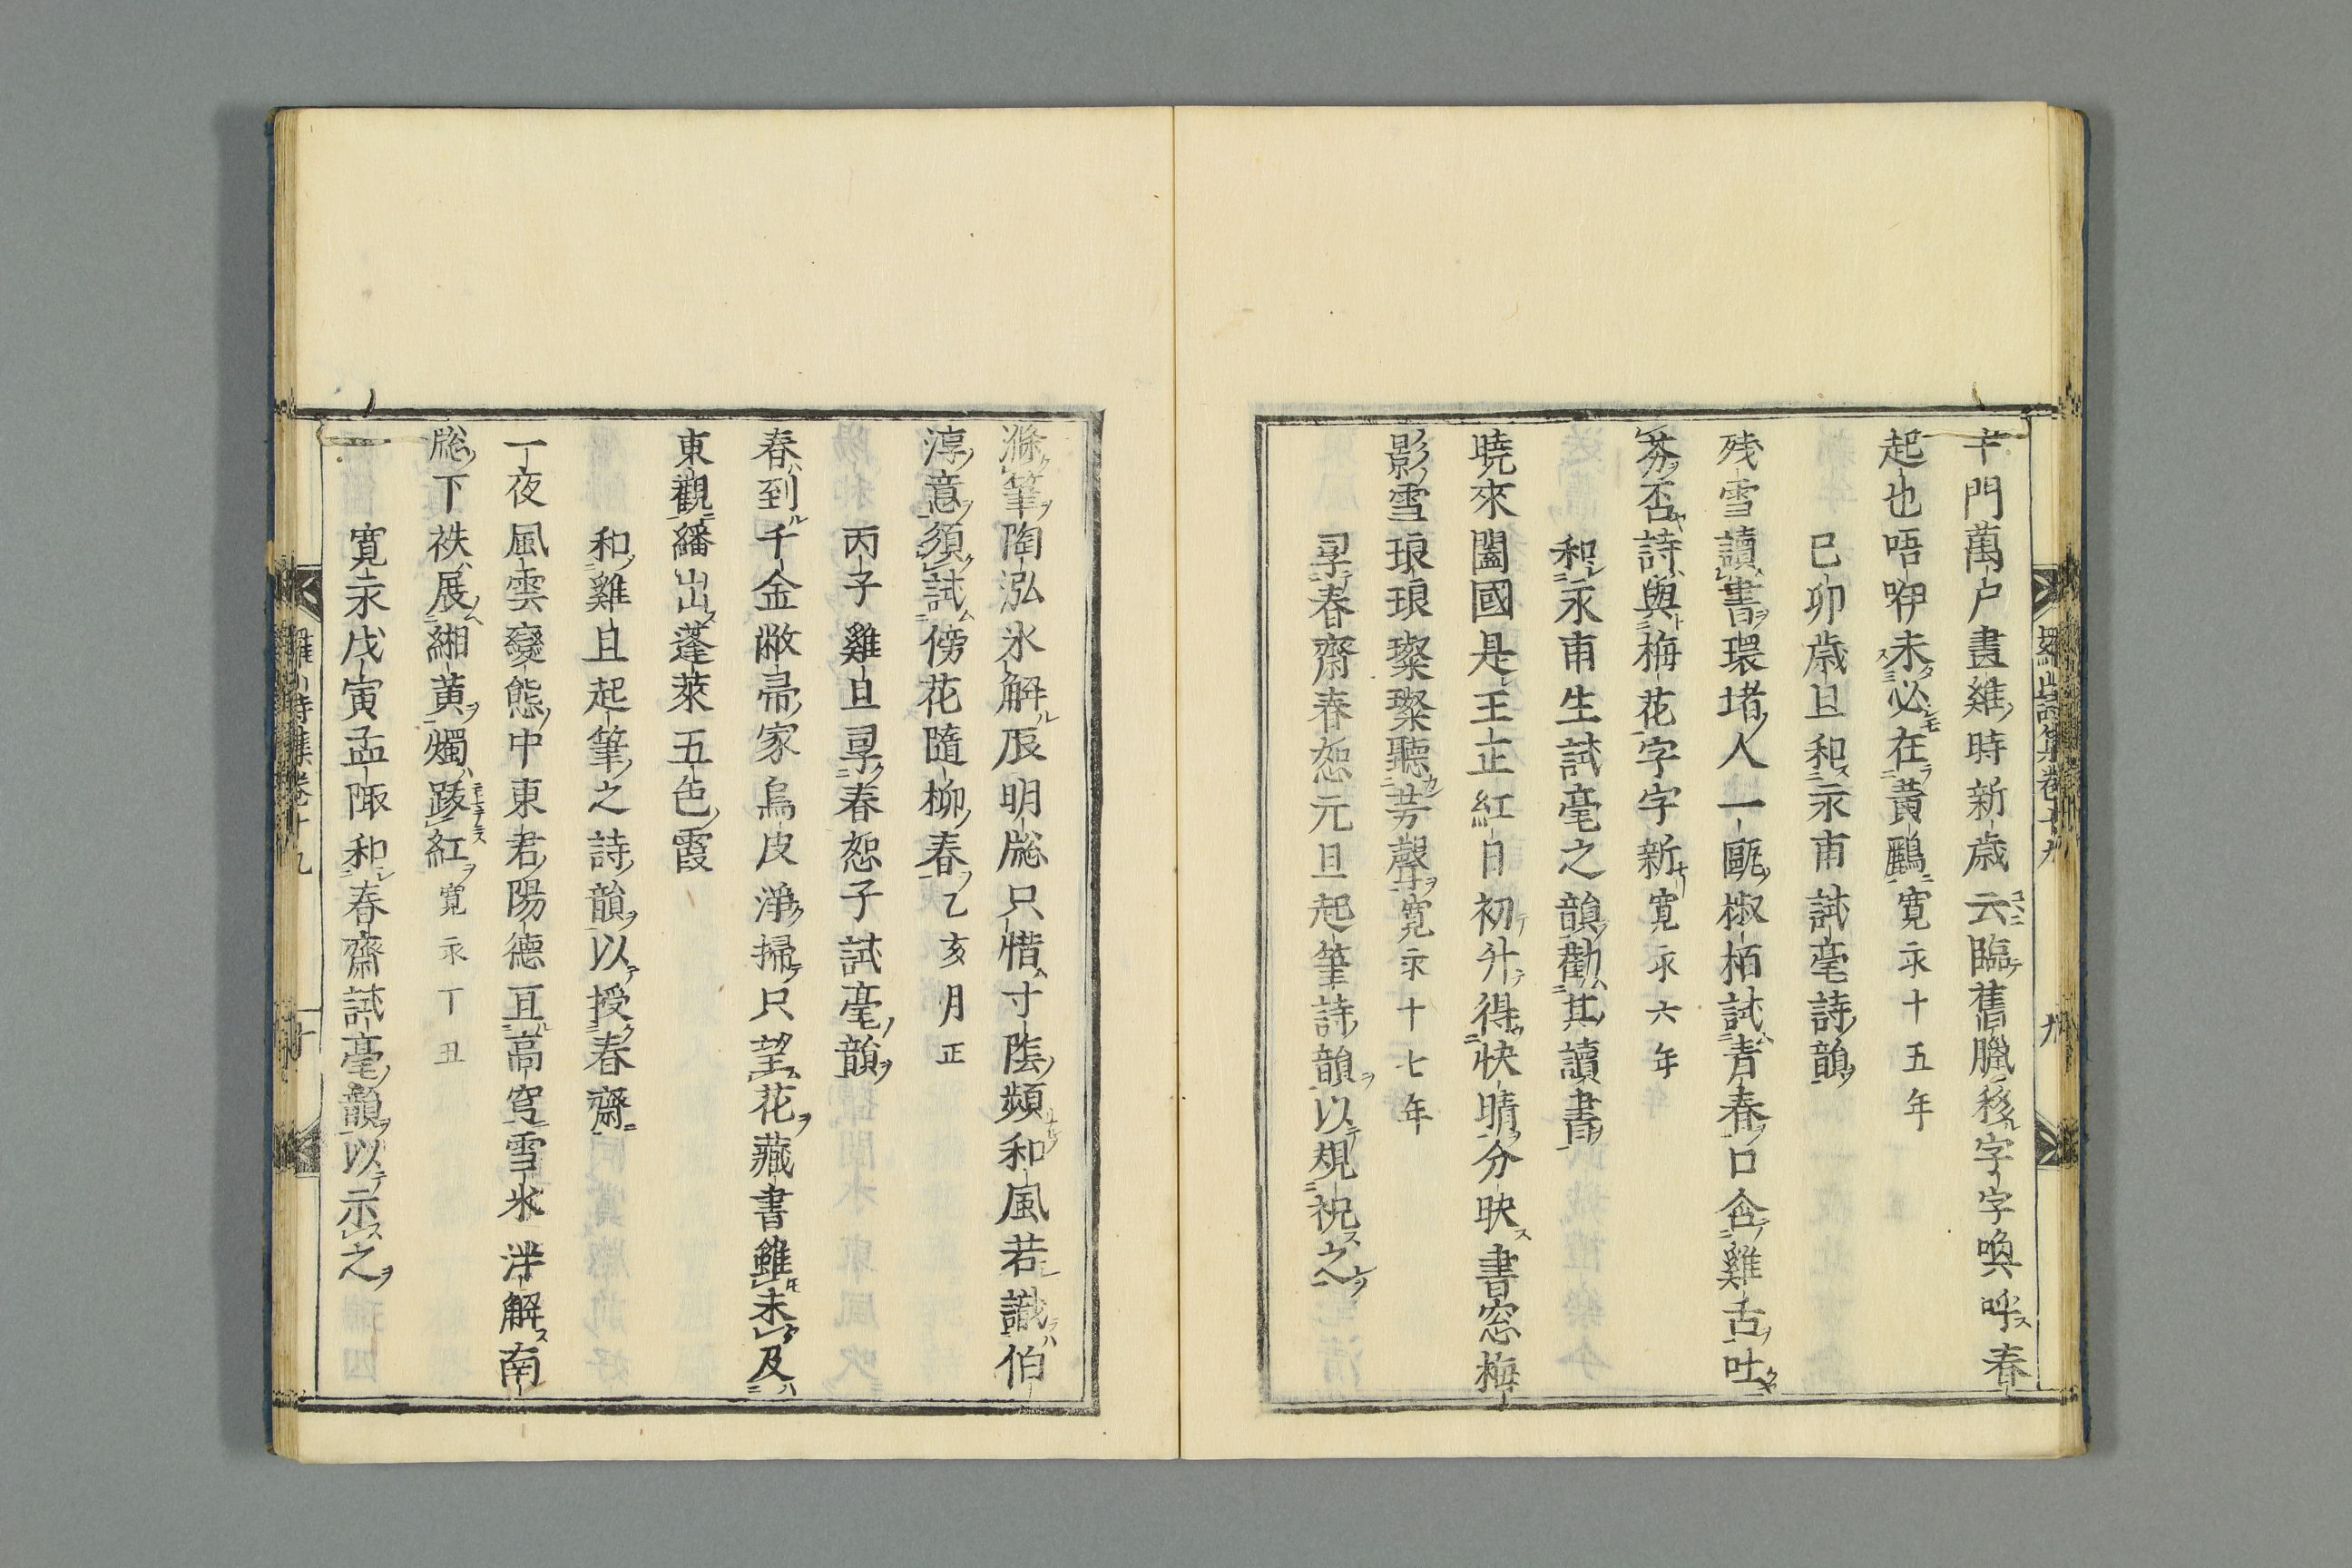 千門萬戸畫雞時新歳云臨舊臘移字字喚呼春
起也唔咿未必在黄鸝寛永十五年
己卯歳旦和永甫試毫詩韻
残雪讀書環堵人一甌椒栢試青春口含雞舌吐
芬否詩與梅花字字新寛永六年
和永甫生試毫之韻勸其讀書
曉來闔國是王正紅日初升得快晴分映書窓梅
影雪琅琅璨璨聽芳聲寛永十七年
尋春齋春恕元旦起筆詩韻以規祝之
羅山詩集卷十九
九
滌筆陶泓氷解辰明牕只惜寸陰頻和風若識伯
淳意須試傍花隨柳春乙亥月正
丙子雞旦尋春恕子試毫韻
春到千金敝帚家烏皮淨掃只望花藏書雖未及
東觀繙出蓬萊五色霞
和雞旦起筆之詩韻以授春齋
一夜風雲變態中東君陽德亘高穹雪氷泮解南
牕下袟展緗黄燭跋紅寛永丁丑
寛永戊寅孟陬和春齋試毫韻以示之
羅山詩集卷十九
十